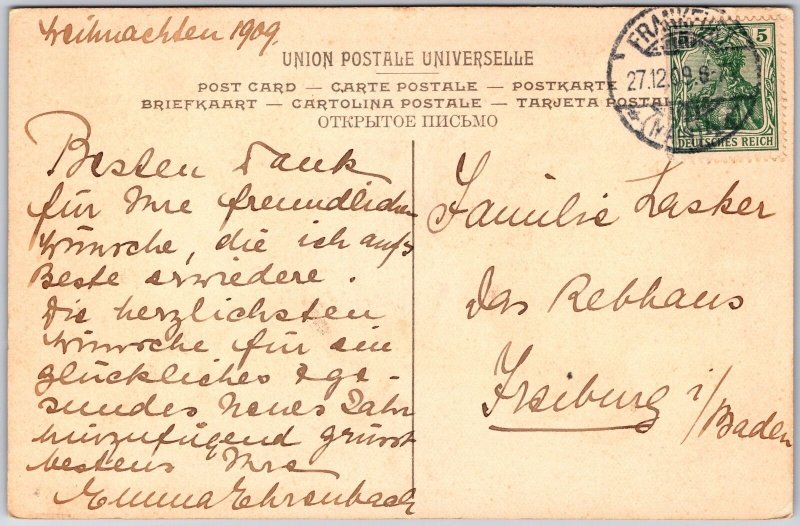 Weihnachten 1909.
UNION POSTALE UNIVERSELLE
POST CARD — CARTE POSTALE — POSTKARTE
BRIEFKAART — CARTOLINA POSTALE — TARJETA POSTAL
ОТКРЫТОЕ ПИСЬМО
5
DEUTSCHES REICH
27.12.09.
Besten Dank
für Ihre freundlichen
Wünsche, die ich aufs
Beste erwiedere.
Die herzlichsten
Wünsche für ein
glückliches & ge-
sundes Neues Jahr
hinzufügend grüsst
bestens Ihre
Emma Ehrenbach
Familie Lasker
Das Rebhaus
Freiburg i/Baden